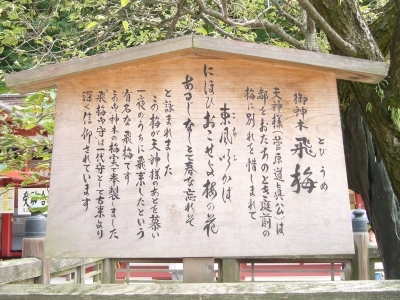 御神木 飛梅
とびうめ
天神様(菅原道真公)は
都をおたちのとき庭前の
梅に別れを惜しまれて
東風吹かば
にほひおこせよ梅の花
あるじなしとて春な忘れそ
と詠まれました
この梅が天神様のあとを慕い
一夜のうちに飛来したという
有名な飛梅です
この御神木の梅実で奉製しました
飛梅守は一代守として古来より
深く信仰されています